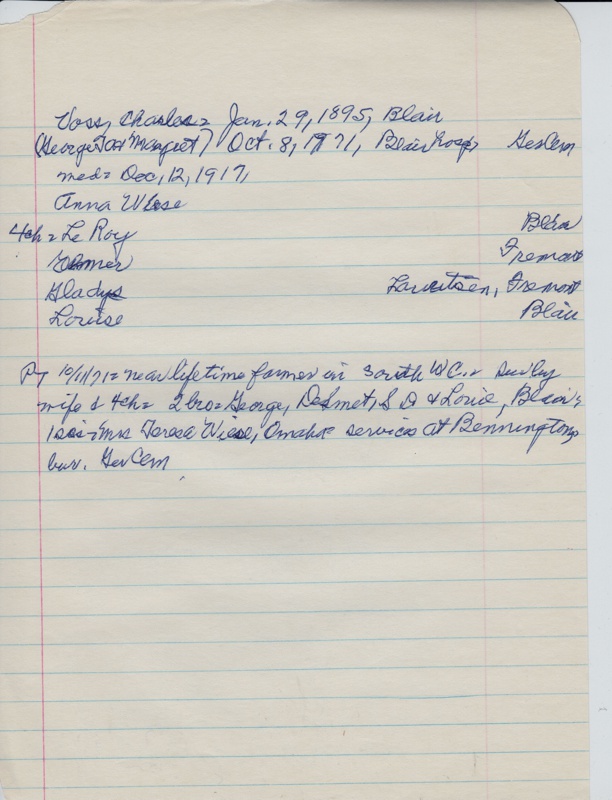 Voss, Charles = Jan. 29, 1895, Blair
(George Margaret) Oct. 8, 1971, Blair Hosp, GerCem
med = Dec, 12, 1917,
Anna Wiese
4ch = Le Roy Blair
Elmer Fremont
Gladys Lauritsen, Fremont
Louise Blair
PT 10/11/71 = near lifetime farmer in South WC. = sur by
wife & 4ch = 2 bro = George, DeSmet, S D & Louie, Blair,
1 sis = Mrs Teresa Wiese, Omaha = services at Bennington,
bur. GerCem